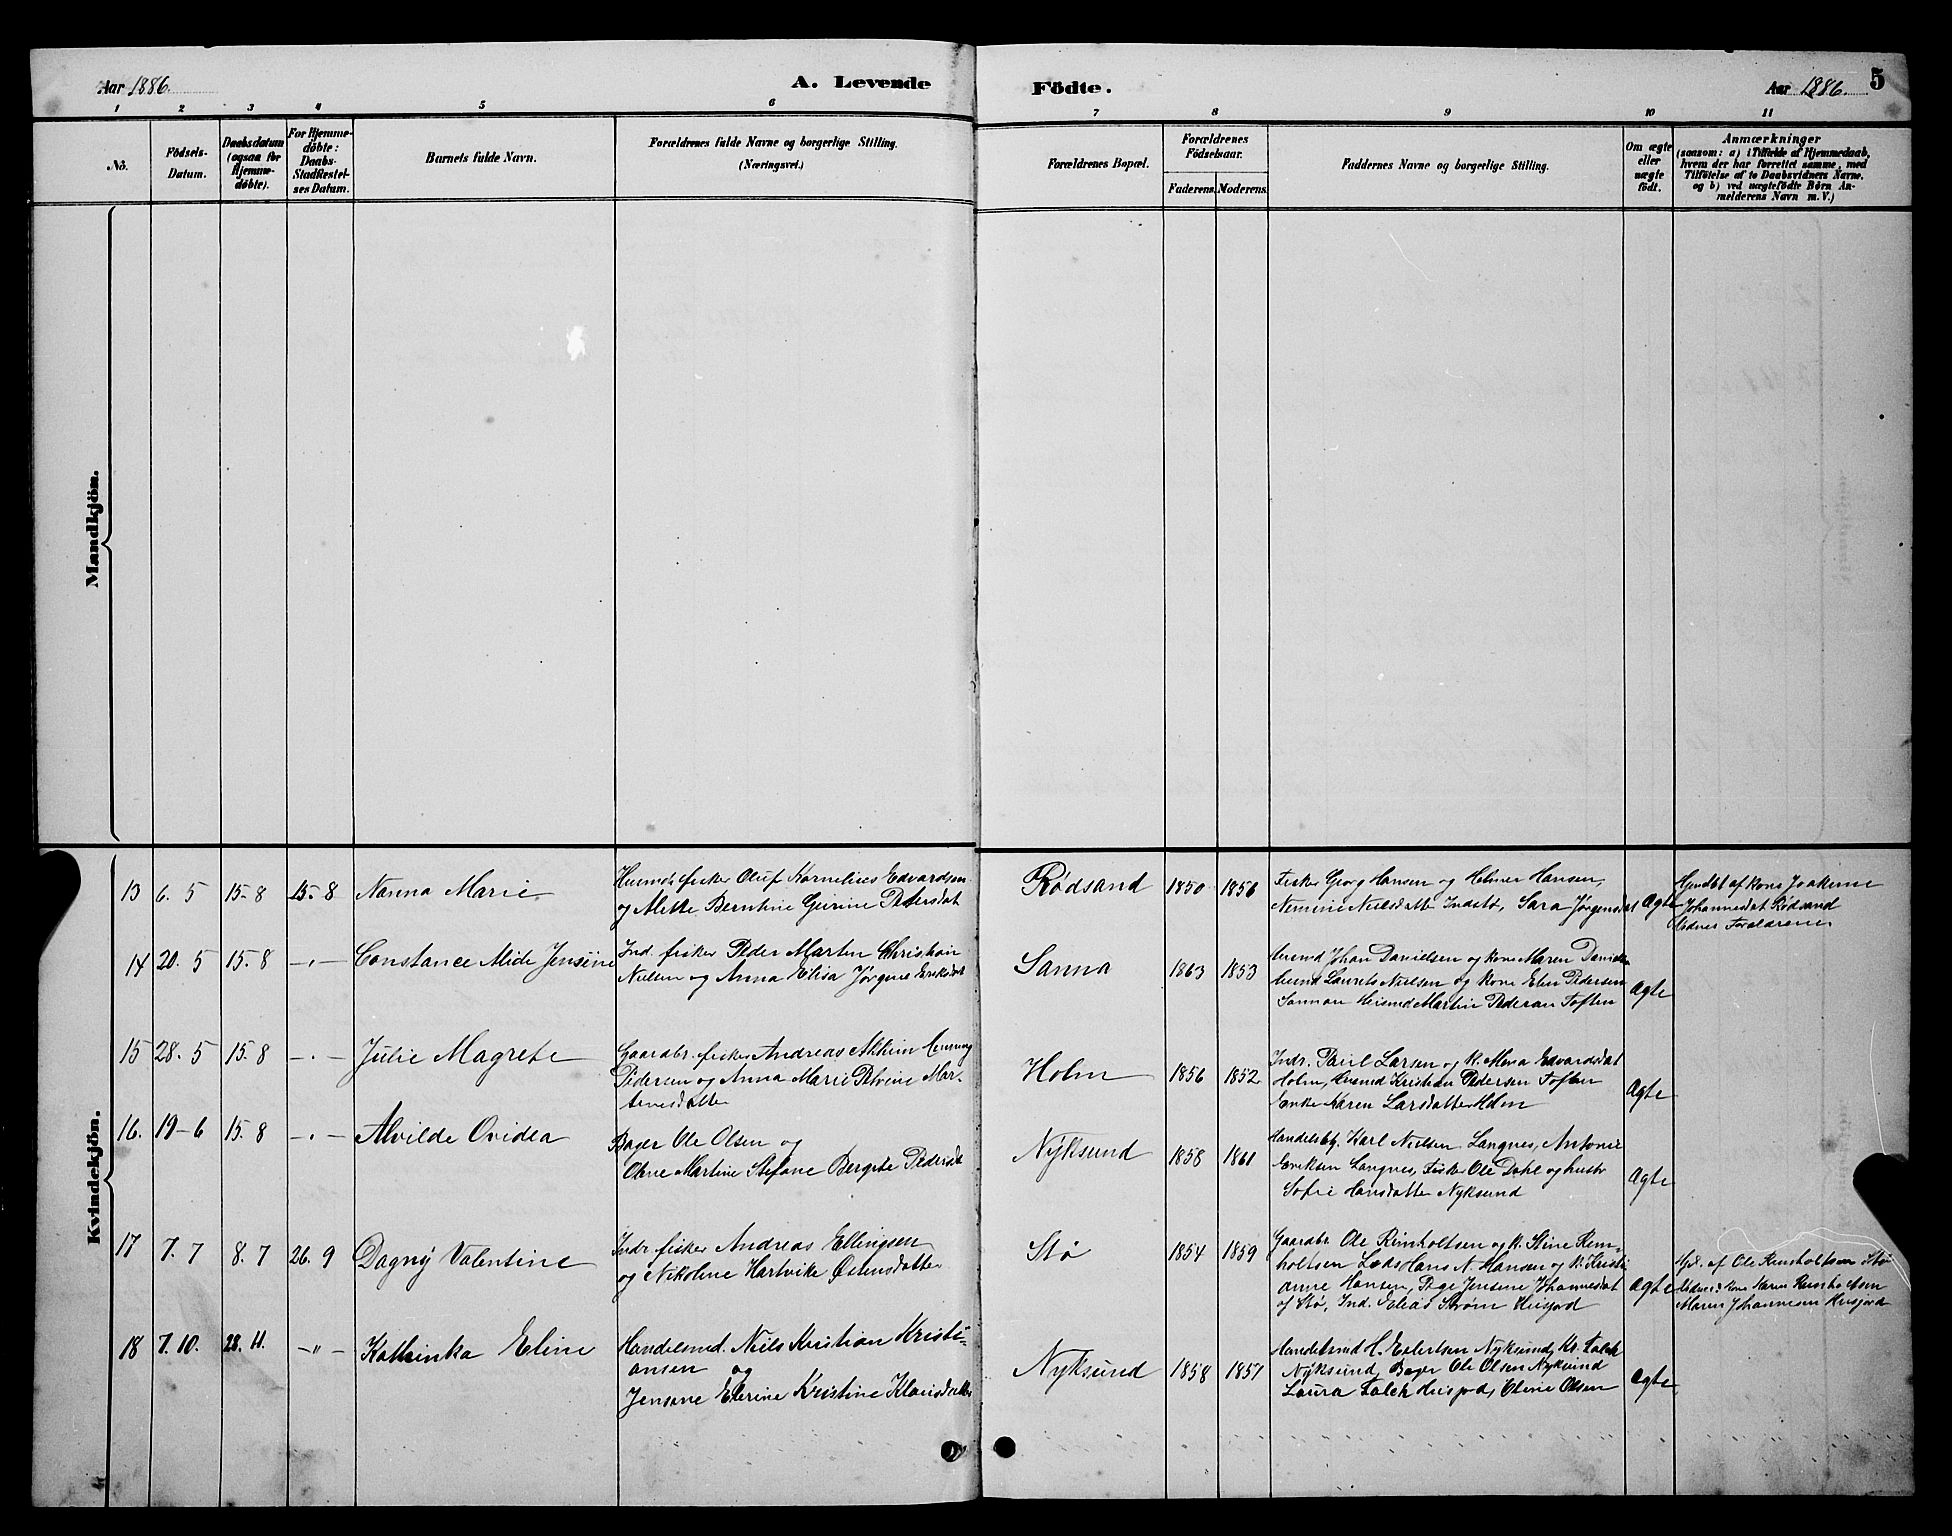 Aar 1886.
A. Levende
Födte.
Aar 1886.
5
1 2 3 4 5 6 7 8 9 10 11
No.
Födsels-
Datum.
Daabsdatum
(ogsaa for
Hjemme-
döbte).
For Hjemme-
döbte:
Daabs-
Stadfæstel-
ses Datum.
Barnets fulde Navn.
Forældrenes fulde Navne og borgerlige Stilling.
(Næringsvei.)
Forældrenes Bopæl.
Forældrenes
Födselsaar.
Faderens.
Moderens.
Faddernes Navne og borgerlige Stilling.
Om ægte
eller
uægte
födt.
Anmærkninger
(saasom: a) i Tilfælde af Hjemmedaab,
hvem der har forrettet samme, med
Tilföielse af to Daabsvidners Navne,
og b) ved uægtefödte Börn An-
melderens Navn m. V.)
Mandkjön.
Kvindekjön.
13 6. 5 15-8 15-8 Nanna Marie
Huusmd. fisker Oluf Kornelius Edvardsen
og Mette Berntine Gurine Pedersdat
Rödsand 1850 1856
Fisker Georg Hansen og Helmer Hansen,
Nemine Nielsdatter Indstø, Sara Jørgensdat
Agte
Hjmdbt af Kone Joakime
Johannesdat Rödsand
Vidner Forældrene
14 20. 5 15-8 -"- Constance Alide Jensine
Ind. fisker Peder Marten Christian
Nielsen og Anna Elisa Jørgine Eriksdat
Sanna 1863 1853
Johan Danielsen og Kone Maren Daniels
Laurits Nielsen og Kone Elen Pedersen
Sannan Martin Pedersen Toften
Agte
15 28. 5 15. 8 -"- Julie Magrete
Gaardbr. fisker Andreas Akkim Henning
Pedersen og Anna Marie Petrine Mar-
tinesdatter
Holm 1856 1852
Indr. Paul Larsen og K. Mina Edvardsdat
Holm, Kristian Pedersen Toften
Enke Karen Larsdatter Holm
Agte
16. 19-6 15. 8 -"- Alvilde Ovidea
Bager Ole Olsen og
Oline Martine Stefane Bergite Pedersdt
Nyksund 1858 1861
Handelsbt. Karl Nielsen Langnes, Antonie
Eriksen Langnes, Fisker Ole Dahl og hustr
Sofie Hansdatter Nyksund
Agte
17 7. 7 8. 7 26. 9 Dagny Valentine
Indr. fisker Andreas Ellingsen
og Nikoline Hartvike Østensdatter
Stø 1854 1859
Gaardbr Ole Reinholtsen og K. Stine Rein-
holtsen Lods Hans N. Hansen og K. Kristi
anne Hansen, Pige Jensine Johannesdat
af Stø, Ind. Elias Strøm Husjord
Agte
Hjd. af Ole Reinholtsen Stø
Vidner: Kone Karen Reinholtsen
Maren Johannesen Husjord
18 7. 10. 28. 11. -"- Kathinka Eline
Handelsmd. Niels Kristian Kristi-
ansen og
Jensine Elerine Kristine Klausdatter
Nyksund 1858 1857
Handelsmd H. Eilertsen Nyksund, Kr. Falch
Nyksund, Bager Ole Olsen Nyksund
Laura Falch Husjord, Oline Olsen
Agte